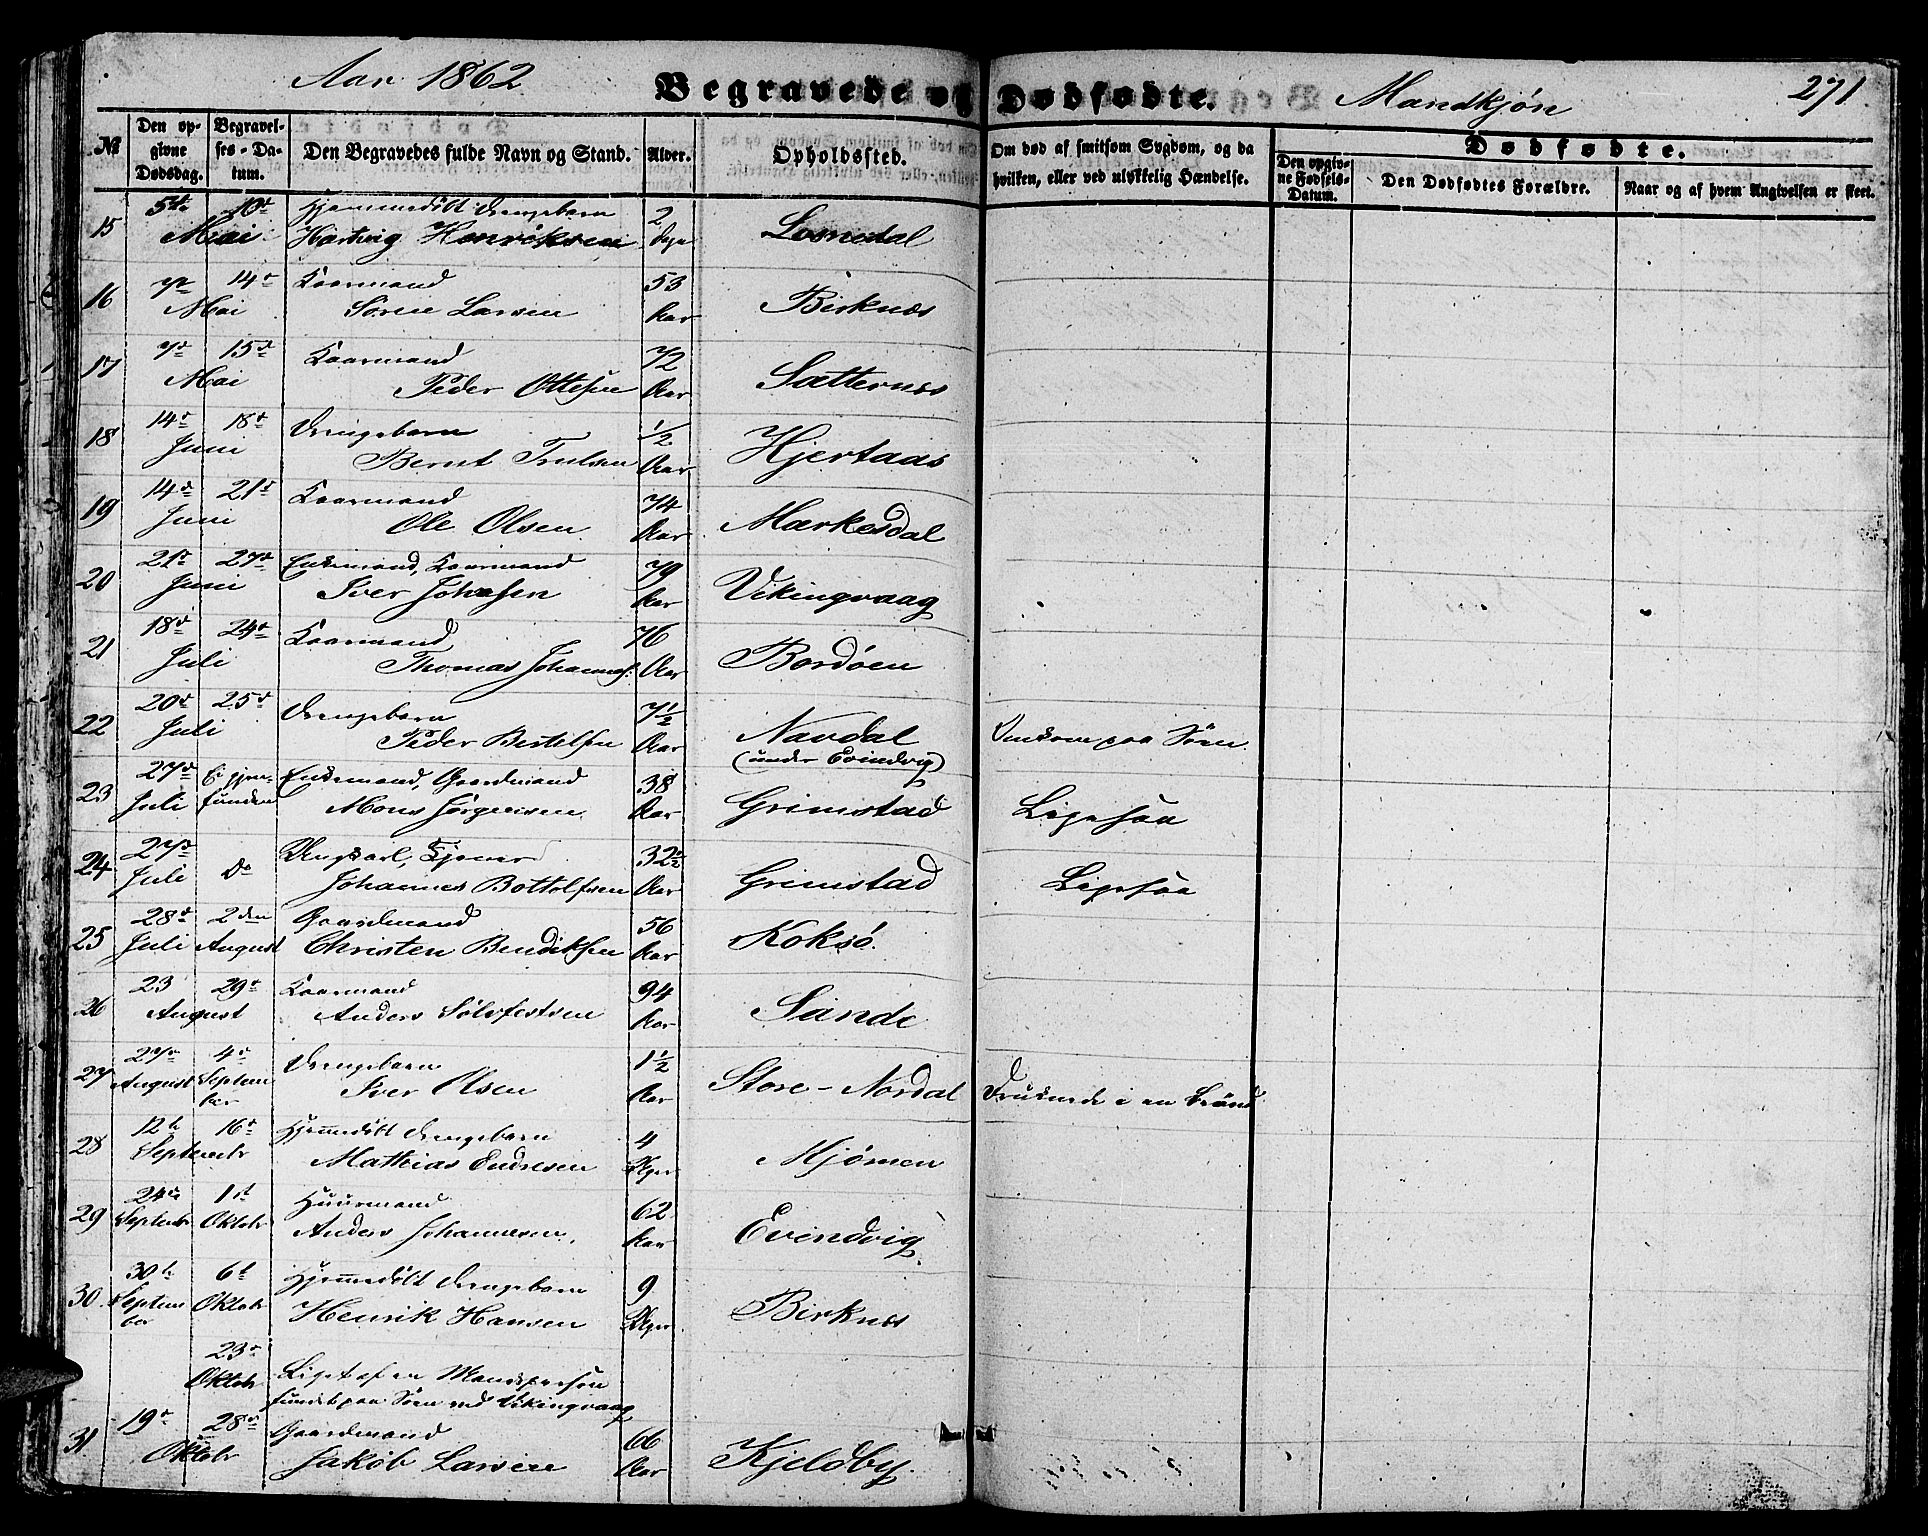 Aar 1862
Begravede og Dødfødte.
Mandkjøn
271
№
Den opgivne Dødsdag.
Begravelses-Datum.
Den Begravedes fulde Navn og Stand.
Alder.
Opholdssted.
Om død af smitsom Sygdom, og da hvilken, eller ved ulykkelig Hændelse.
Dødfødte.
Den opgivne Fødsels-Datum.
Den Dødfødtes Forældre.
Naar og af hvem Angivelsen er skeet.
15 5te 10d Mai Hjemmedøbt Drengebarn Hartvig Henriksen 2 Dage
16 7d 14d Mai Kaarmand Sören Larsen 53 Aar Birknæs
17 7d 15d Mai Kaarmand Peder Ottesen 72 Aar Sætternes
18 14d 18d Juni Drengebarn Bernt Trulsen 1/2 Aar Hjertaas
19 14d 21d Juni Kaarmand Ole Olsen 74 Aar Mærkesdal
20 21d 27d Juni Enkemand, Kaarmand Iver Johnsen 79 Aar Vikingvaag
21 18d 24d Juli Kaarmand Thomas Johannes. 76 Aar Bordöen
22 20d 25d Juli Drengebarn Peder Bertelsen 7 1/2 Aar Navdal (under Evindvig) Omkom paa Søen.
23 27d Juli Ei gjenfunden Enkemand, Gaardmand Mons Jørgensen 38 Aar Grimstad Ligesaa
24 27d Juli do Ungkarl, Tjener Johannes Bottolfsen 32 1/2 Aar Grimstad Ligesaa
25 28d Juli 2den August Gaardmand Christen Bendiksen 56 Aar Koksö.
26 23 29d August Kaarmand Anders Sølvfestsen 94 Aar Sande
27 27d August 4d September Drengebarn Iver Olsen 1 1/2 Aar Store-Nordal Druknede i en Brønd
28 12te 16d Septembr Hjemmedøbt Drengebarn Mathias Endresen 4 Uger Mjömen
29 24de Septembr 1st Oktobr Huusmand Anders Johannesen, 62 Aar Evindvig.
30. 30te September 6te Oktobr Hjemmedøbt Drengebarn Henrik Hansen 9 Uger Birknæs
23d Oktobr Liget af en Mandsperson funden paa Søen ved Vikingvaag
31 19d 28d Oktobr Gaardmand Jakob Larsen 66 Aar Kjeldby.